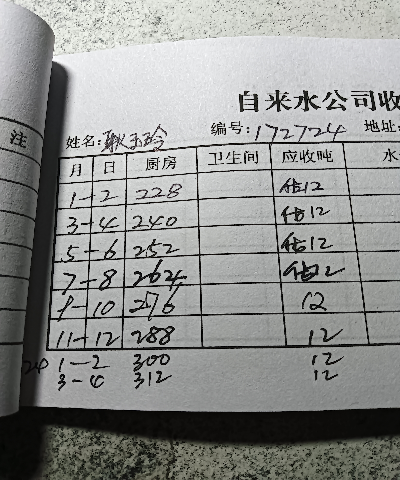 自来水公司收
姓名: 耿玉玲 编号: 172724 地址:
注
月 日 厨房 卫生间 应收吨 水
1-2 228 估12
3-4 240 估12
5-6 252 估12
7-8 264 估12
9-10 276 12
11-12 288 12
24 1-2 300 12
3-4 312 12